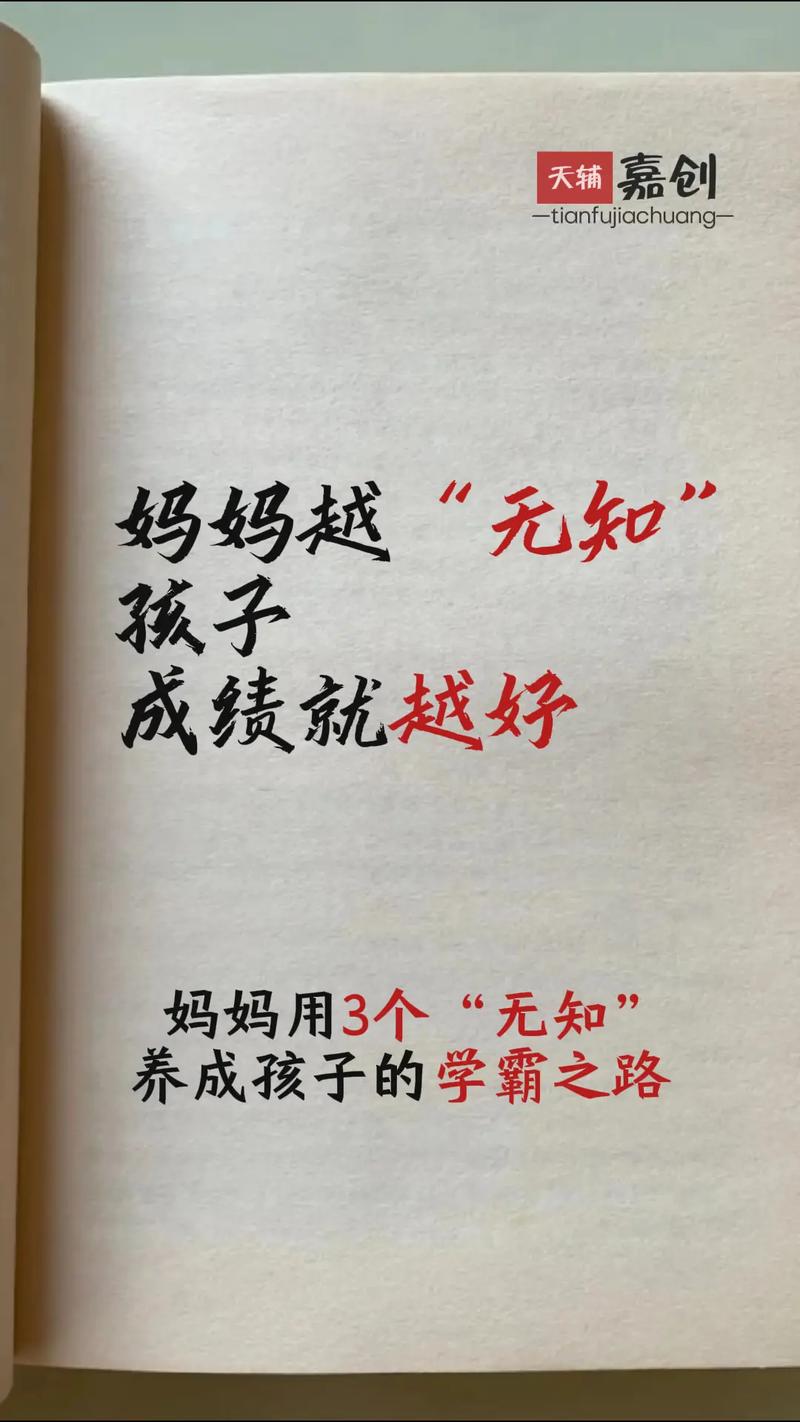 天辅 嘉创
—tianfujiachuang—
妈妈越“无知”
孩子
成绩就越好
妈妈用3个“无知”
养成孩子的学霸之路